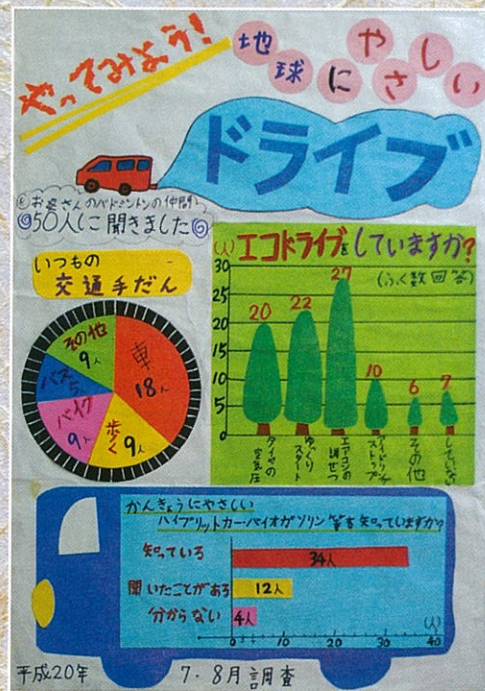 やってみよう!
地球にやさしい
ドライブ
お母さんのバドミントンの仲間
50人に聞きました
いつもの
交通手だん
その他
9人
車
18人
バス
5人
バイク
9人
歩く
9人
エコドライブをしていますか?
(人)
(ふく数回答)
30
25
20
15
10
5
0
20
22
27
10
6
7
タイヤの空気圧
ゆっくりスタート
エアコンの調せつ
アイドリングストップ
その他
していない
かんきょうにやさしい
ハイブリットカー・バイオガソリン等を知っていますか?
知っている
34人
聞いたことがある
12人
分からない
4人
(人)
0
10
20
30
40
平成20年 7・8月調査